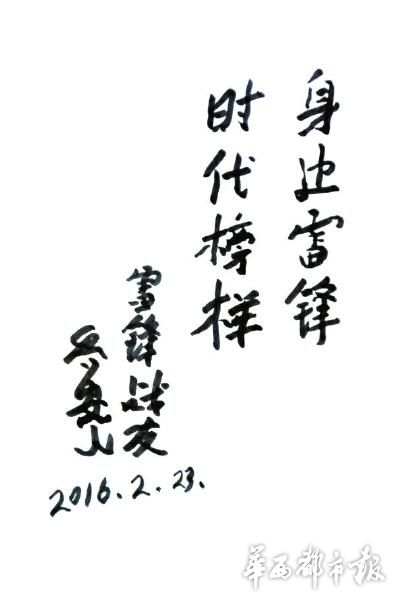 身边雷锋
时代榜样
雷锋战友
2016.2.23.
華西都市報